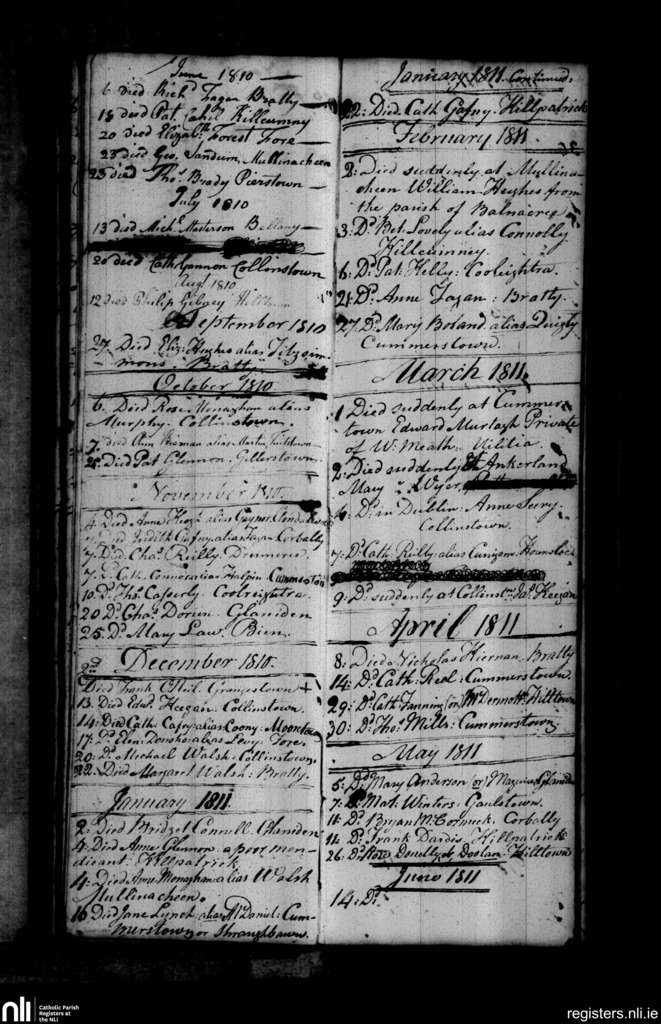 June 1810
6 Died Richd Fagan Bratty
18 died Pat. Cahil Killcumny
20 died Elizabth Forest Fore
23 died Geo. Sandum, Mullinacheen
25 died Thos Brady Pierstown
July 1810
13 Died Michl Masterson Bellany
20 Died Cath Gannon Collinstown
Augt 1810
12 Died Philip Gibney
September 1810
27. Died Eliz: Hughes alias Fitzsim-
mons: Bratty
October 1810
6. Died Rose Monaghan alias
Murphy. Collinstown.
7. died Ann alias Martin
25. Died Pat Glennon. Gillerstown.
November 1810.
4 Died Anne alias Gaynor
7 Died Judith Gafny alias Fagan Corbally
7. Died Chas Reilly. Dunmere.
7. Do Cath. alias Halpin Cummerstown
10. Do Thos Caferly. Coolreightra.
20 Do Chas Dorien. Glaniden
25. Do Mary Law. Bien.
December 1810.
2d Died Frank O'Neil. Grangestown +
13. Died Edwd Keegan. Collinstown.
14: Died Cath: Cafny alias Coony. Moortown
17: Do Elen: alias Levy. Fore.
20: Do Michael Walsh. Collinstown.
22: Died Margaret Walsh. Bratty.
January 1811
2: Died Bridget Connell. Glaniden
4: Died Anne Glennon. a poor men-
dicant. Killpatrick
4: Died Anne Monaghan alias Walsh
Mullinacheen.
16. Died Jane Lynch. alias McDaniel: Cum-
merstown or
January 1811 Continued:
22: Died. Cath Gafny. Killpatrick
February 1811
2: Died suddenly at Mullina-
cheen William Hughes from
the parish of Balnacree
3: Do Bet: Lovely alias Connolly
Killcumney.
6: Do Pat: Kelly: Cooleightra.
21: Do Anne Fagan: Bratty.
27. Do Mary Boland alias Quigly
Cummerstown.
March 1811.
1 Died suddenly at Cummers-
town Edward Murtagh Private
of W: Meath. Militia.
2: Died suddenly at Ankerland
Mary Wyer,
4: Do in Dublin: Anne Terry.
Collinstown.
7: Do Cath: Reilly alias
9: Do suddenly at Collinstn Jas Keegan
April 1811
8: Died Nicholas Kiernan. Bratty
14: Do Cath: Real: Cummerstown.
29: Do Cath Fannington McDermott. Hilltown
30: Do Thos Mills: Cummerstown
May 1811
5: Do Mary Anderson or
7: Do Mat: Winters: Gaulstown.
11: Do Bryan McCormick. Corbally
11: Do Frank Dardis. Killpatrick
26. Do Rose Donelly Doolan: Hilltown
June 1811
14: Do
nli
Catholic Parish
Registers at
the NLI
registers.nli.ie